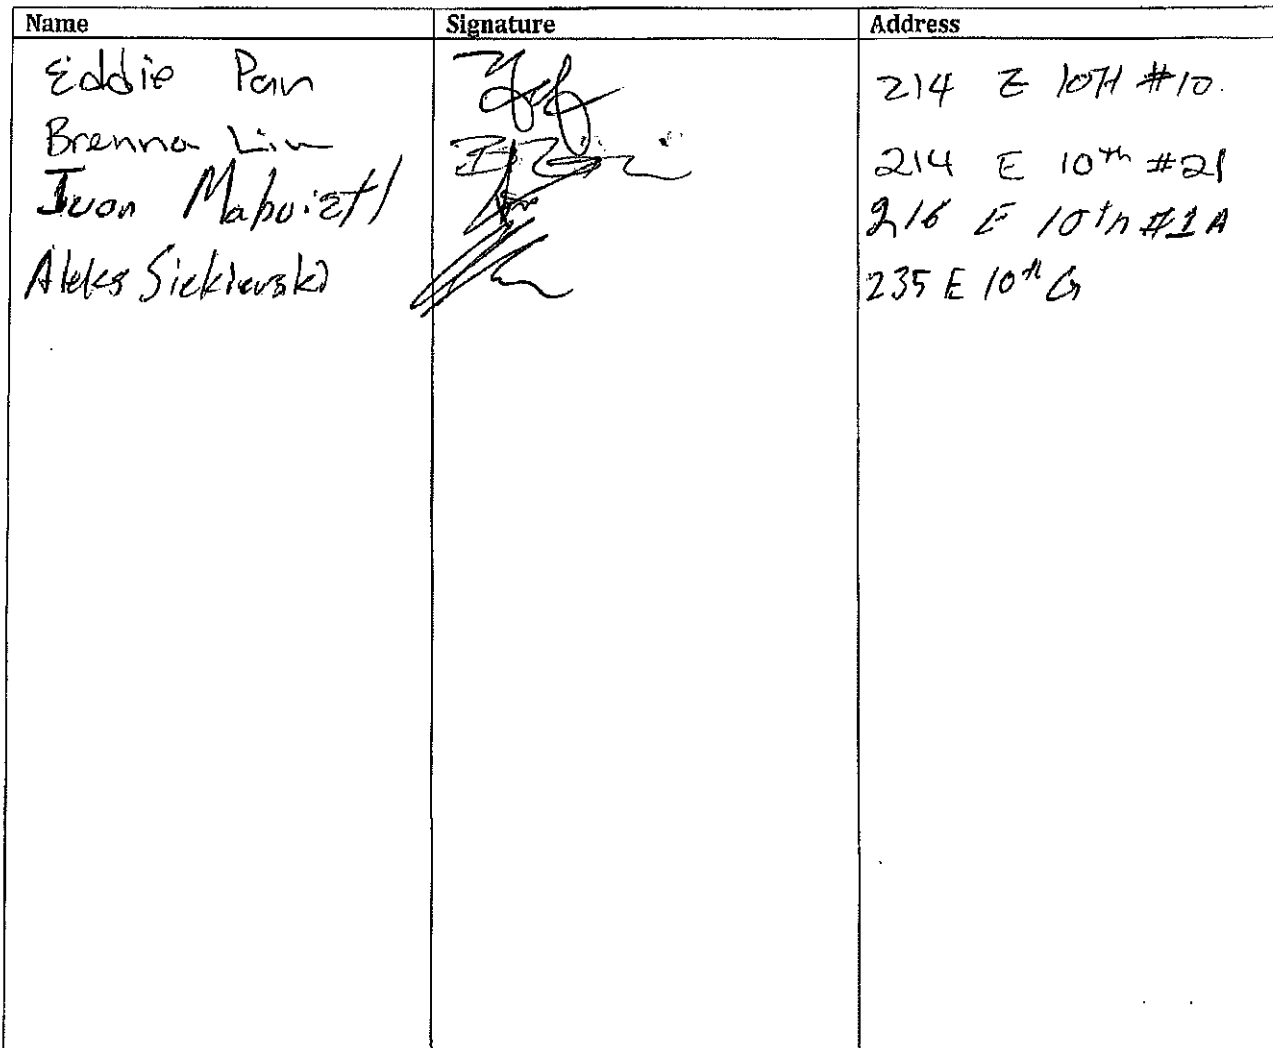 Name Signature Address
Eddie Pan 214 E 10TH #10.
Brenna Lin 214 E 10th #21
Juan 216 E 10th #1A
Aleks Siekierski 235 E 10th G